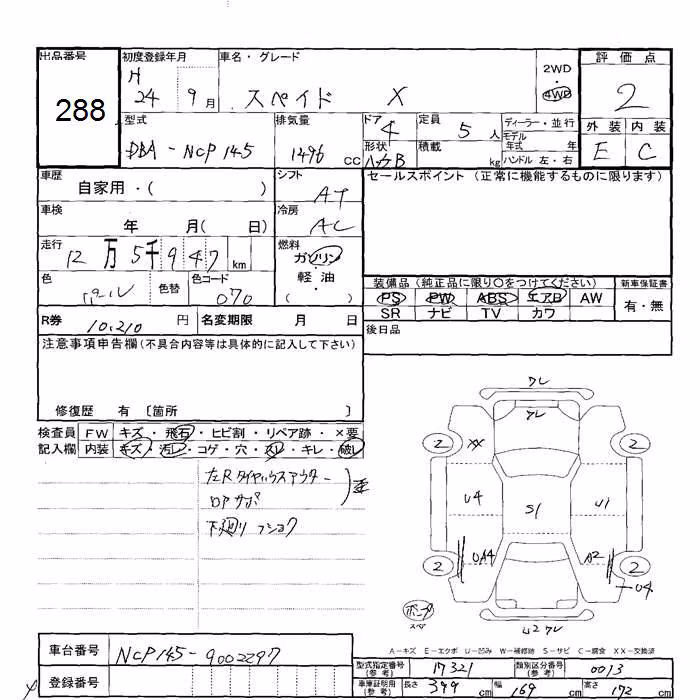 出品番号 初度登録年月 車名・グレード 評価点
288
H 24 9月 スペイド X
2WD 4WD
2
型式 排気量 ドア 定員 ディーラー・並行
DBA-NCP145 1496 cc 4 5人
形状 積載 kg
モデル年式 年
ハンドル 左・右
外装 内装
E C
車歴 シフト セールスポイント (正常に機能するものに限ります)
自家用・( ) AT
車検 冷房
年 月( 日) AC
走行 燃料
12万5千947 km ガソリン・軽油・( )
色 色替 色コード
070
装備品 (純正品に限り○をつけてください) 新車保証書
PS PW ABS エアB AW 有・無
SR ナビ TV カワ
R券 10,210 円 名変期限 月 日
後日品
注意事項申告欄(不具合内容等は具体的に記入して下さい)
修復歴 有 [箇所 ]
検査員 FW キズ・飛石・ヒビ割・リペア跡・×要
記入欄 内装 キズ・汚レ・コゲ・穴・スレ・キレ・破レ
左Rタイヤハウスアウター
下廻り フショク
ワレ
ワレ
2 XX 2
U4 S1 U1
2 UA4 A2 2
U4
U2 ワレ
A-キズ E-エクボ U-凹み W-補修跡 S-サビ C-腐食 XX-交換済
車台番号 NCP145-9002297
登録番号
型式指定番号(参考) 17321 類別区分番号(参考) 0013
車庫証明用(参考) 長さ 399 cm 幅 169 cm 高さ 172 cm